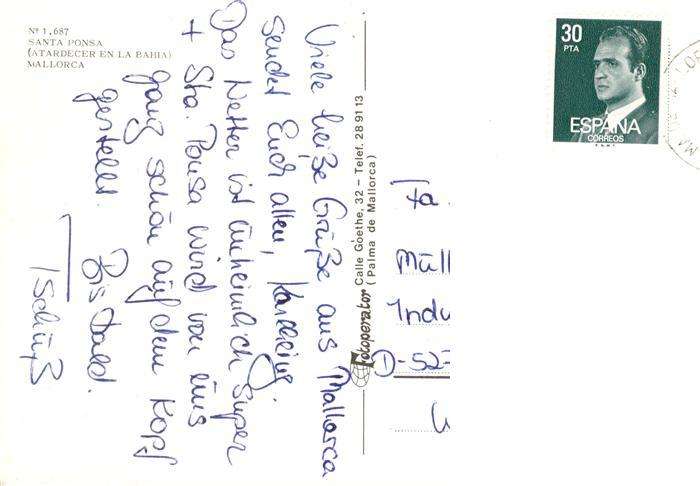 Nº 1.687
SANTA PONSA
(ATARDECER EN LA BAHIA)
MALLORCA
Viele heiße Grüße aus Mallorca
sendet Euch allen,
Das Wetter ist unheimlich super
+ Sta. Ponsa wird von uns
ganz schön auf dem Kopf
gestellt.
Bis bald.
Tschüß
Fotoperator Calle Göethe, 32 - Telef. 28 91 13
(Palma de Mallorca)
30
PTA
ESPAÑA
CORREOS
Fa.
Müll
Indu
D-523
W